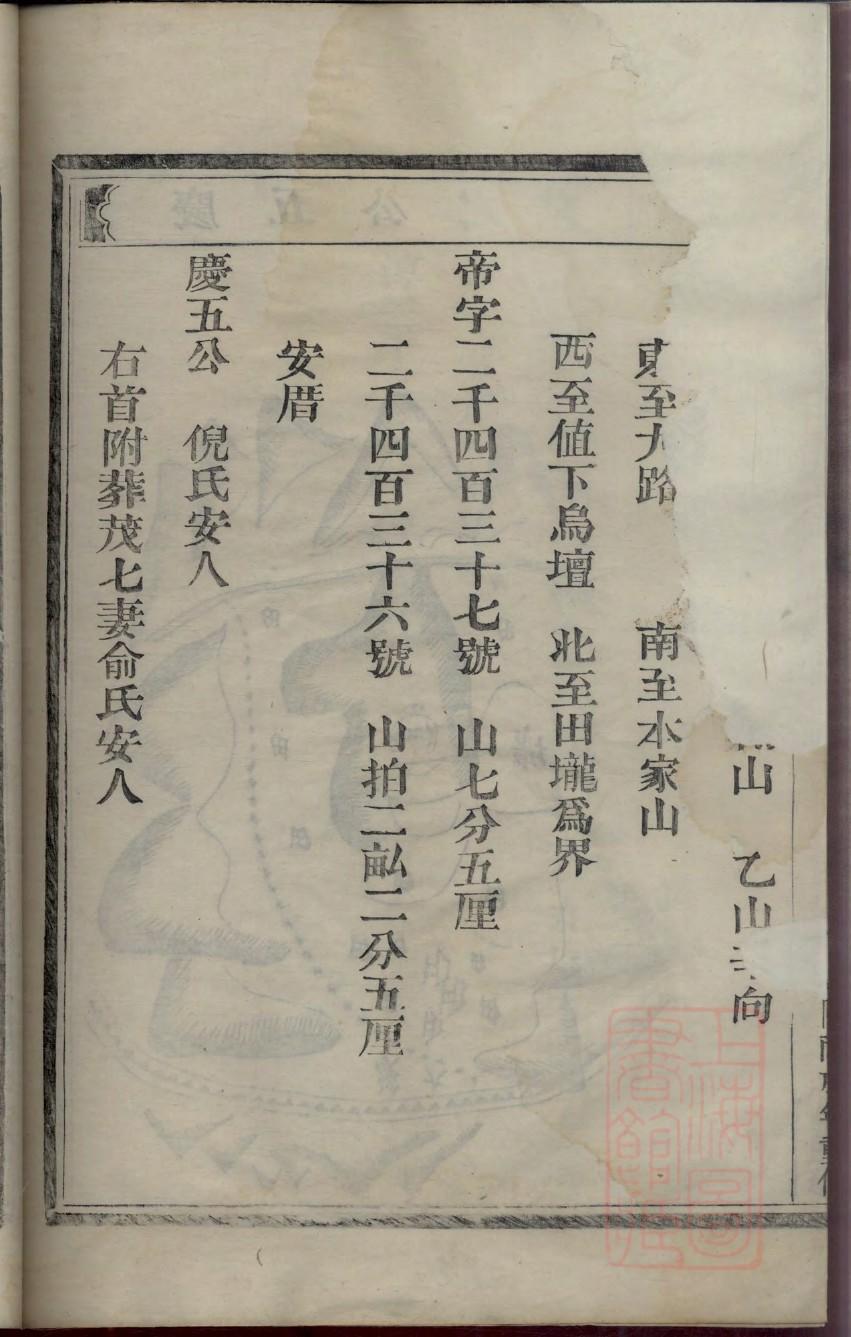 山　乙山　向
東至大路　南至本家山
西至值下烏壇　北至田壠爲界
帝字二千四百三十七號　山七分五厘
二千四百三十六號　山拍二畝二分五厘
安厝
慶五公　倪氏安人
右首附葬茂七妻俞氏安人
上海圖書館藏